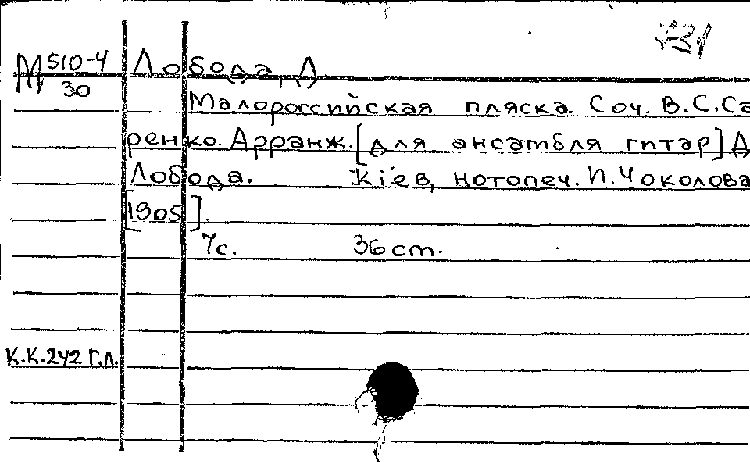 М 510-4
30
Лобода, Д
Малороссийская пляска. Соч. В.С.Са
ренко. Арранж. [для ансамбля гитар] Д
Лобода. Кіев, нотопеч. И.Чоколова
[1905].
7с. 36 cm.
К.К.242 Г.Л.